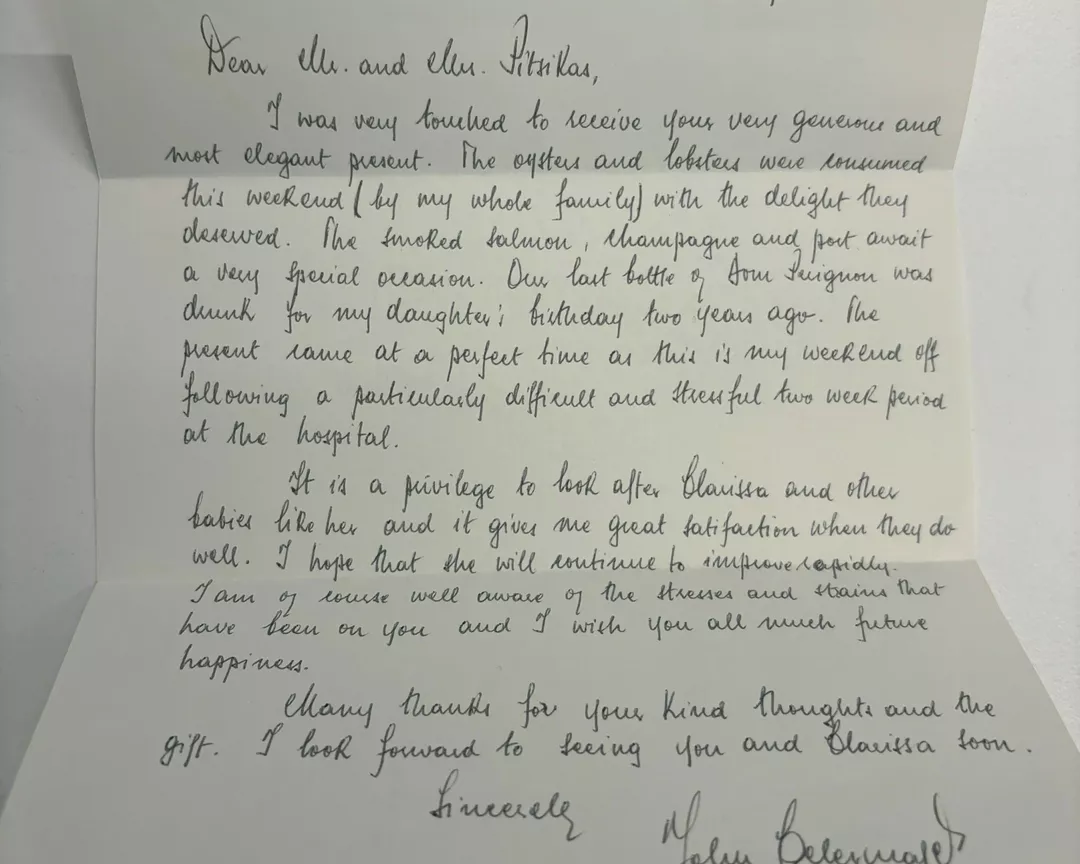 Dear Mr. and Mrs. Pitsikas,
I was very touched to receive your very generous and
most elegant present. The oysters and lobsters were consumed
this weekend (by my whole family) with the delight they
deserved. The smoked salmon, champagne and port await
a very special occasion. Our last bottle of Dom Perignon was
drunk for my daughter's birthday two years ago. The
present came at a perfect time as this is my weekend off
following a particularly difficult and stressful two week period
at the hospital.
It is a privilege to look after Clarissa and other
babies like her and it gives me great satifaction when they do
well. I hope that she will continue to improve rapidly.
I am of course well aware of the stresses and strains that
have been on you and I wish you all much future
happiness.
Many thanks for your kind thoughts and the
gift. I look forward to seeing you and Clarissa soon.
Sincerely
John